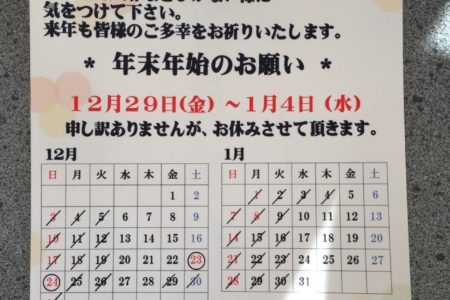 気をつけて下さい。
来年も皆様のご多幸をお祈りいたします。
* 年末年始のお願い *
12月29日(金) ～1月4日 (水)
申し訳ありませんが、お休みさせて頂きます。
12月
日 月 火 水 木 金 土
1 2
3 4 5 6 7 8 9
10 11 12 13 14 15 16
17 18 19 20 21 22 23
24 25 26 27 28 29 30
1月
日 月 火 水 木 金 土
1 2 3 4 5 6
7 8 9 10 11 12 13
14 15 16 17 18 19 20
21 22 23 24 25 26 27
28 29 30 31